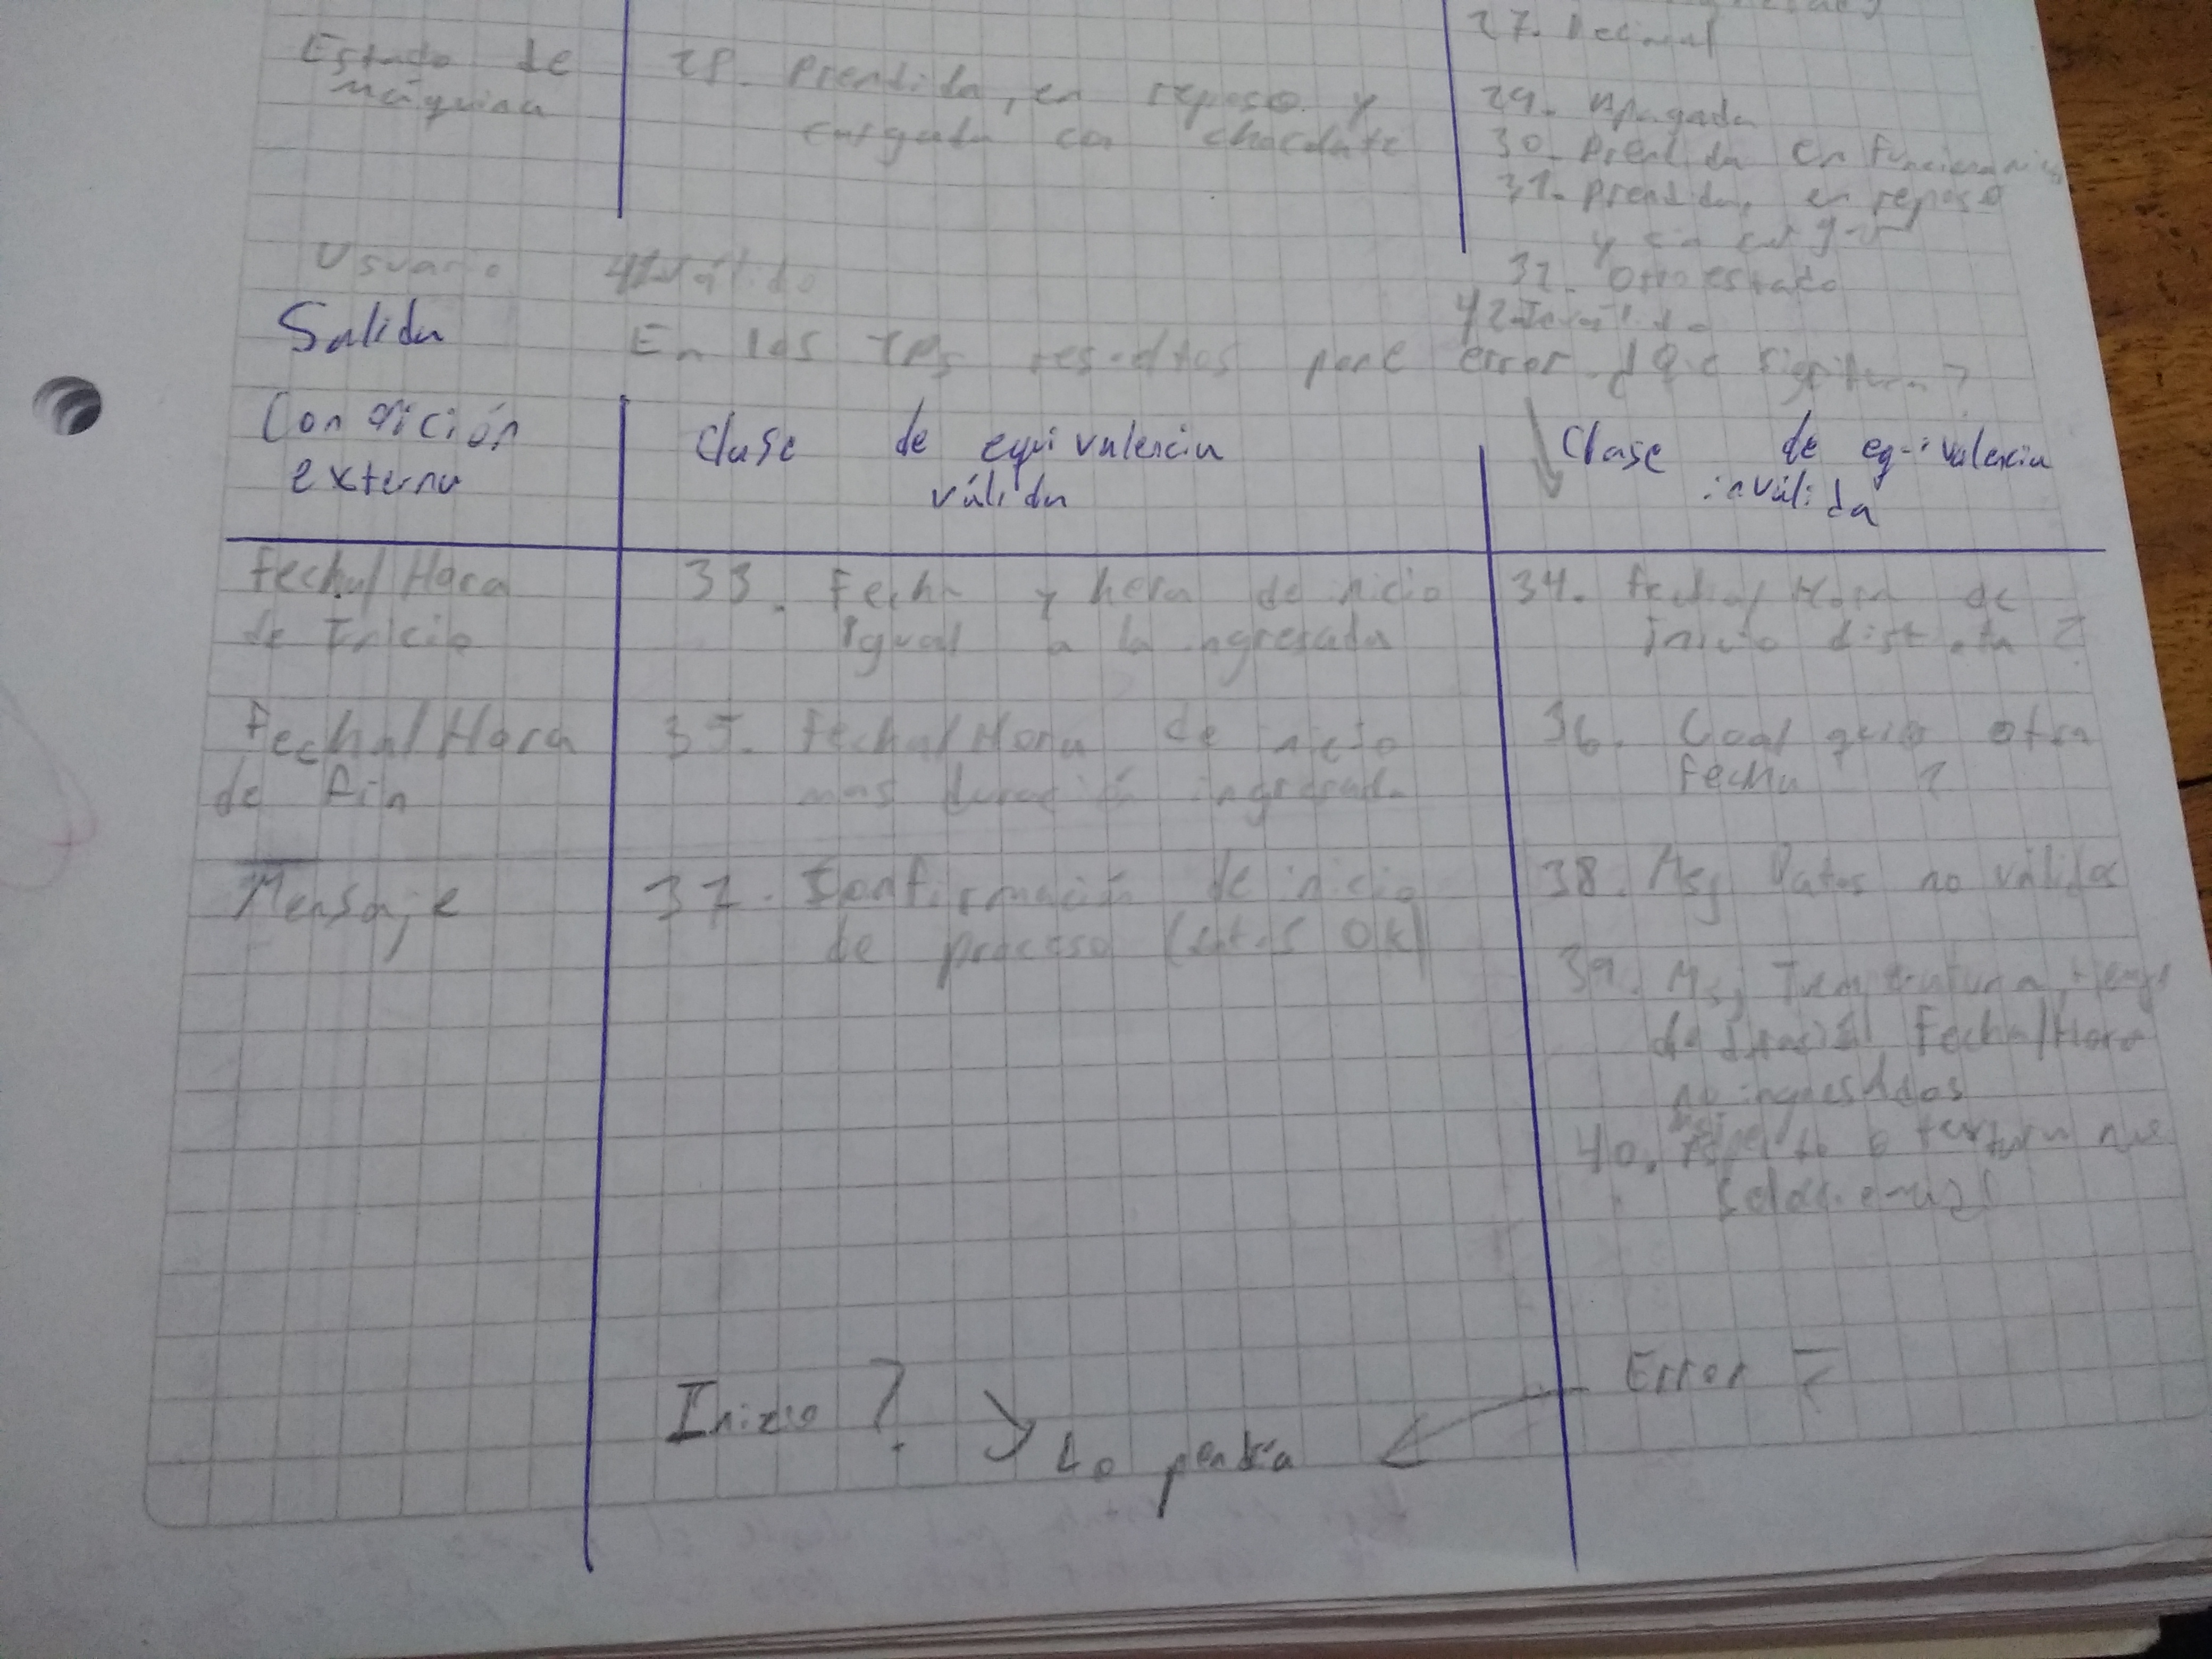 27. Decimal
Estado de
máquina
28. Prendida, en reposo y
cargada con chocolate
29. Apagada
30. Prendida en funcionamien
31. Prendida, en reposo
y sin cargar
32. Otro estado
Usuario 41. Válido
42. Inválido
Salida
En los TPs resueltos pone error. ¿Que significa?
Condición
externa
Clase de equivalencia
válida
Clase de equivalencia
inválida
Fecha/Hora
de Inicio
33. Fecha y hora de inicio
igual a la ingresada
34. Fecha/Hora de
inicio distinta ?
Fecha/Hora
de fin
35. Fecha/Hora de inicio
mas duración ingresada
36. Cualquier otra
fecha ?
Mensaje
37. Confirmación de inicio
de proceso (datos OK)
38. Msj Datos no válidos
39. Msj Temperatura,
Fecha/Hora
no ingresados
40. o textura no
Inicio ?
Lo pondría
Error ?